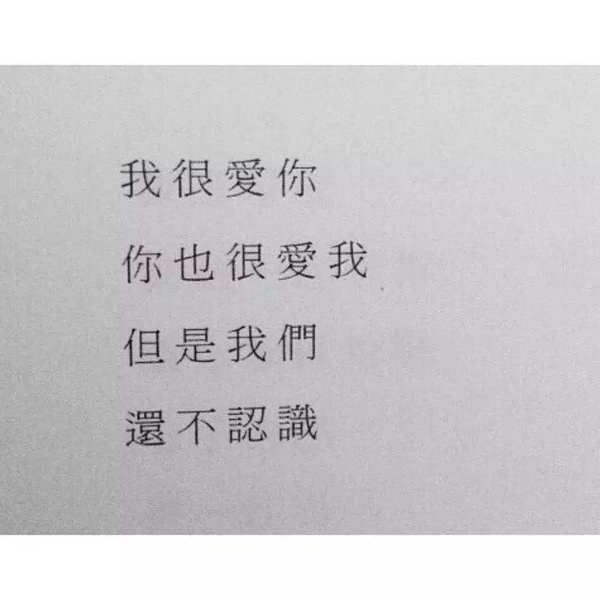 我很愛你
你也很愛我
但是我們
還不認識